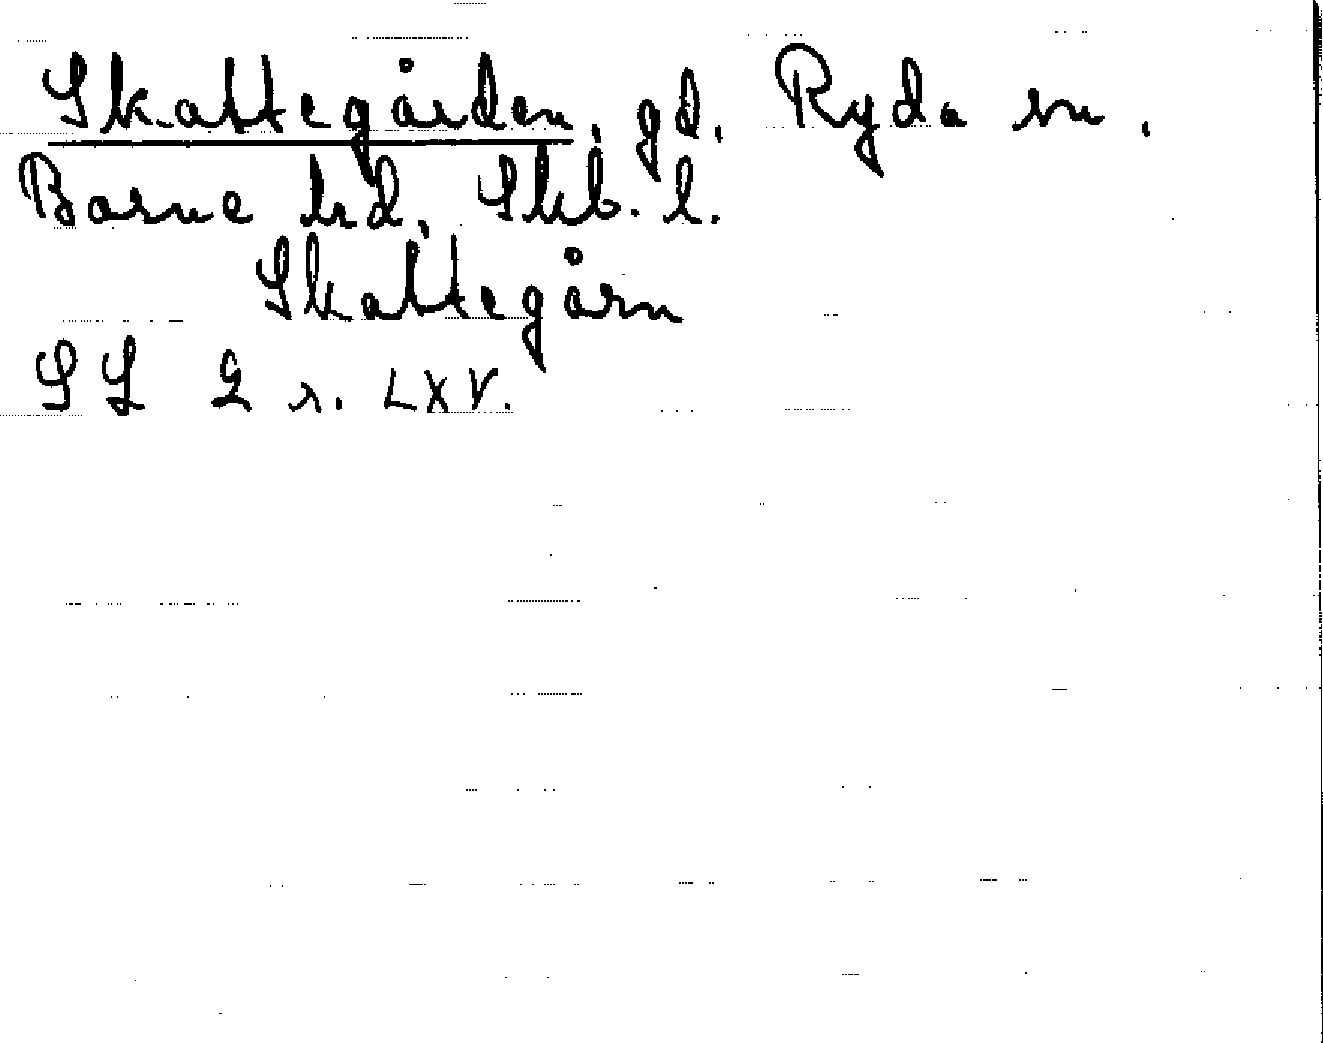 Skattegården, gd, Ryda sn,
Barne hd, Skb. l.
Skattegårn
SL 2 s. LXV.